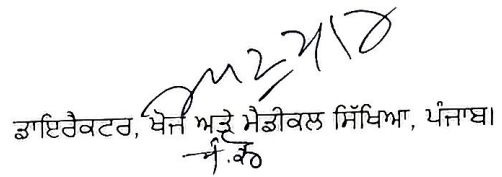 ਡਾਇਰੈਕਟਰ, ਖੋਜ ਅਤੇ ਮੈਡੀਕਲ ਸਿੱਖਿਆ, ਪੰਜਾਬ।